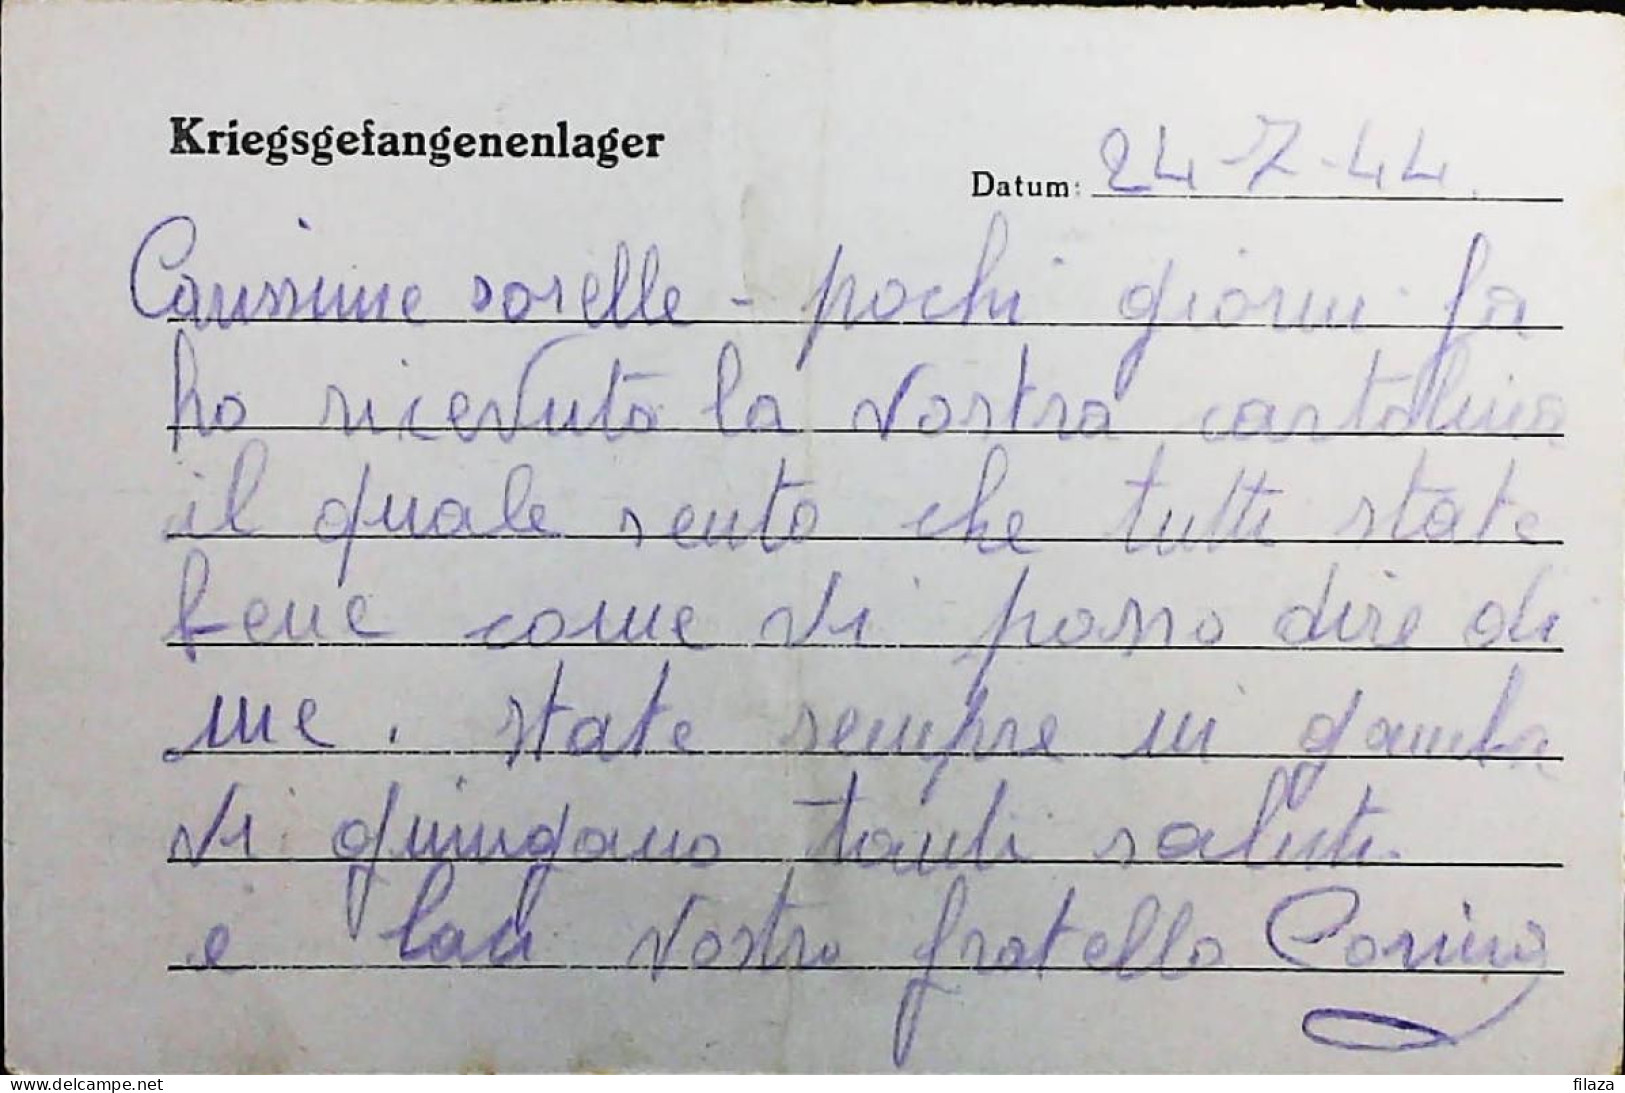 Kriegsgefangenenlager
Datum: 24-7-44.
Carissime sorelle - pochi giorni fa
ho ricevuto la vostra cartolina
il quale sento che tutti state
bene come vi posso dire di
me. state sempre in gamba
vi giungano tanti saluti.
e baci vostro fratello
www.delcampe.net
filaza